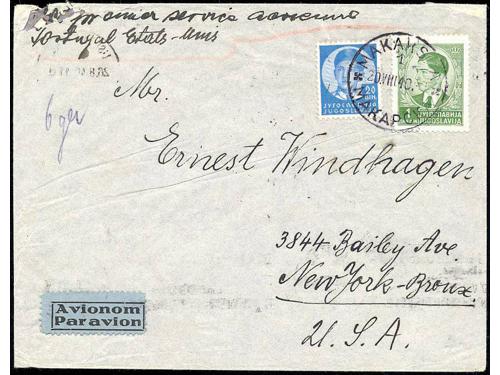 premier service aérienne
Portugal Etats-Unis
Mr.
Ernest Windhagen
3844 Bailey Ave.
New York-Bronx.
U.S.A.
Avionom
Par avion
20
ЈУГОСЛАВИЈА
JUGOSLAVIJA
ЈУГОСЛАВИЈА
JUGOSLAVIJA
MAKARS
20.VIII.40.
МАКАРС